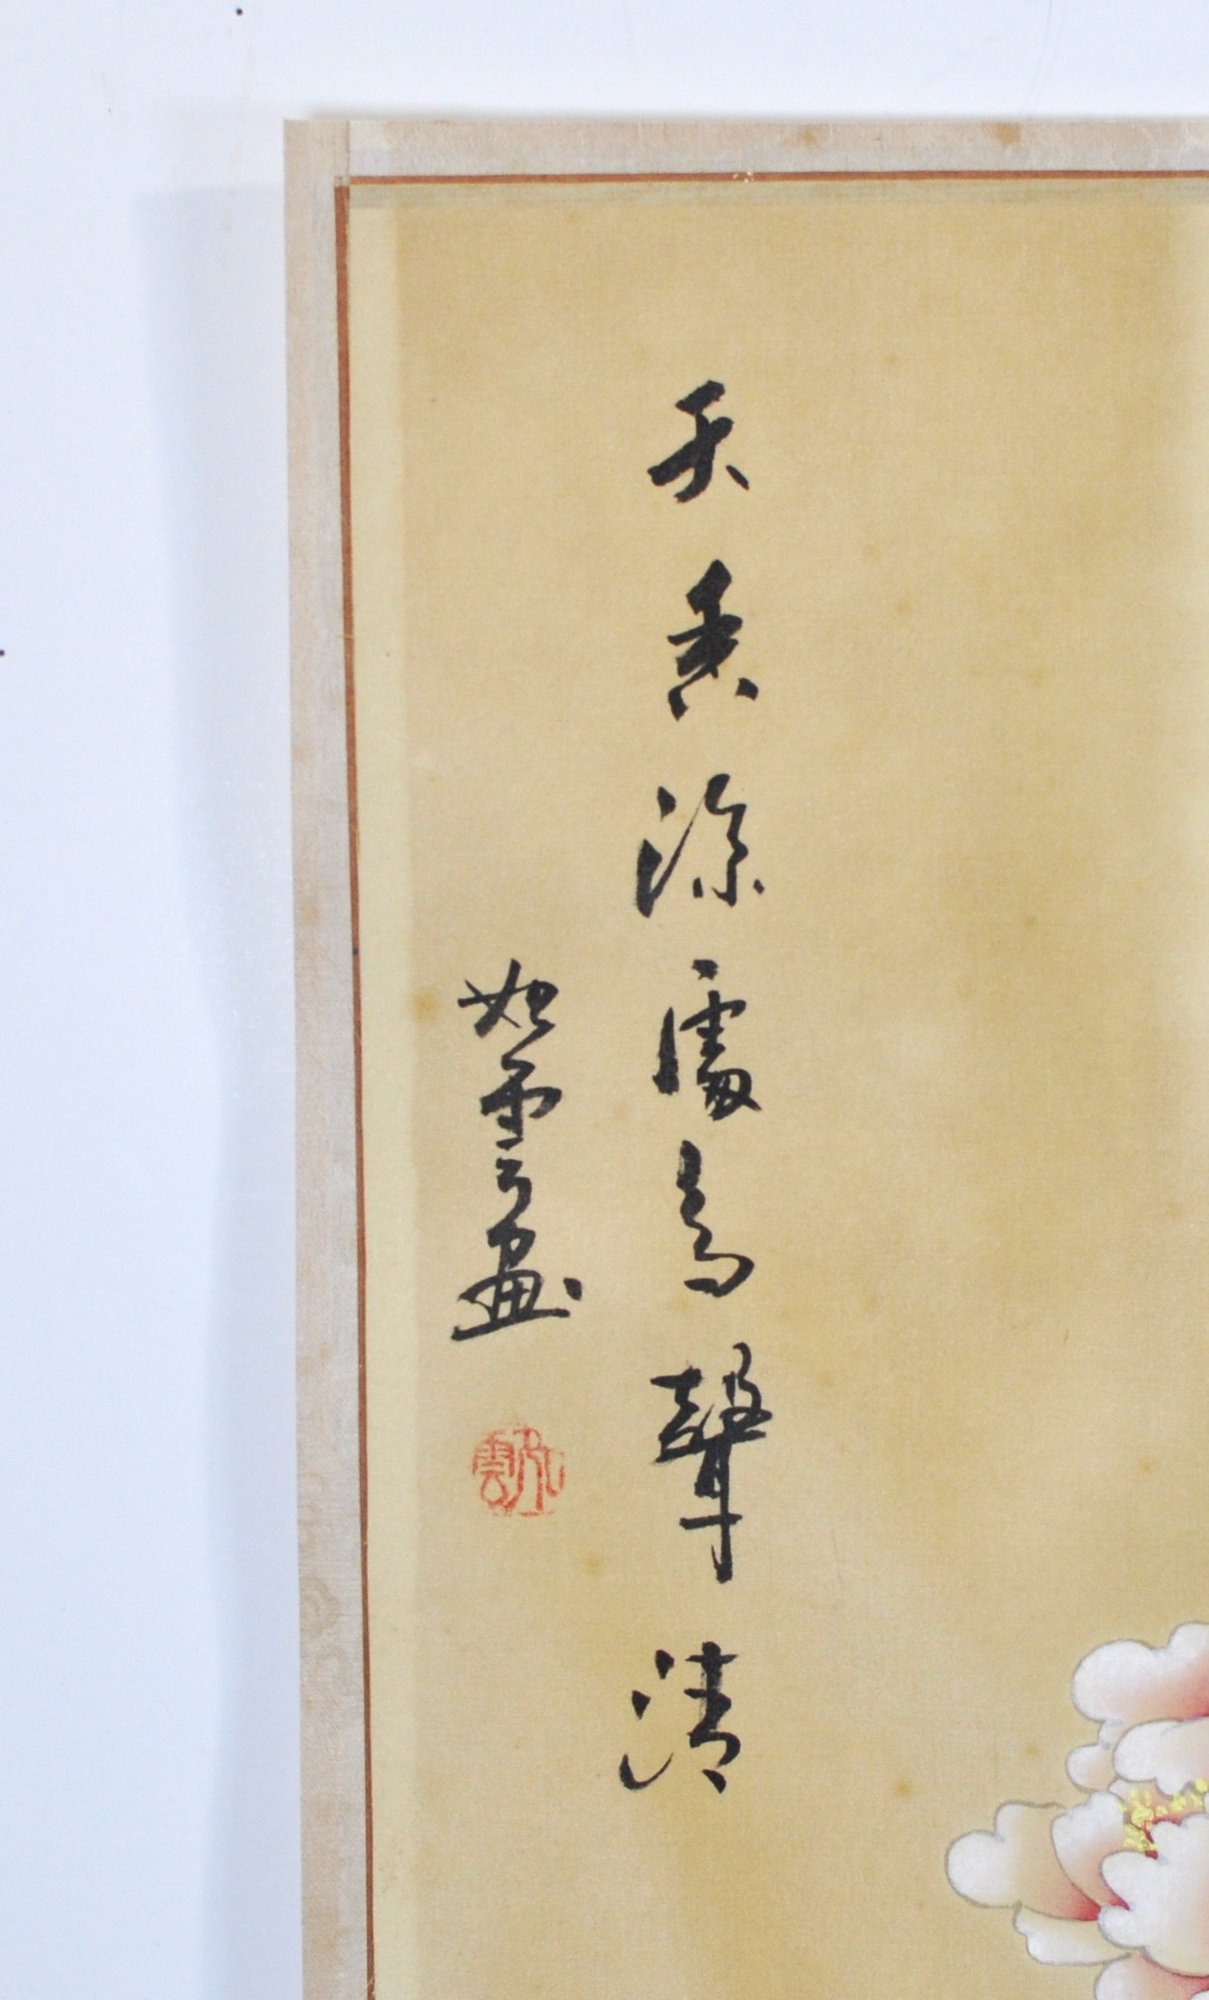 天香深處鳥聲清
如雲畫